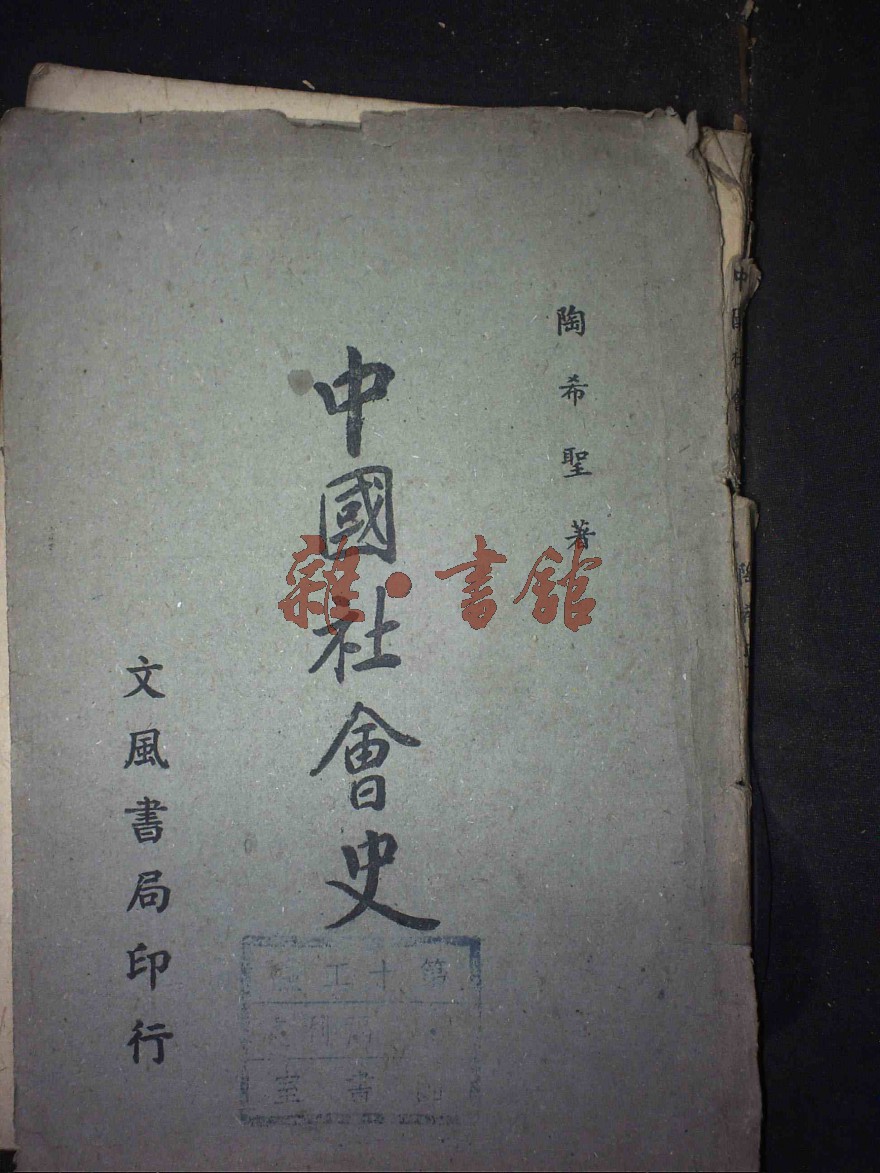 陶希聖著
中國社會史
文風書局印行
雜·書館
中國社會
第十工
書室